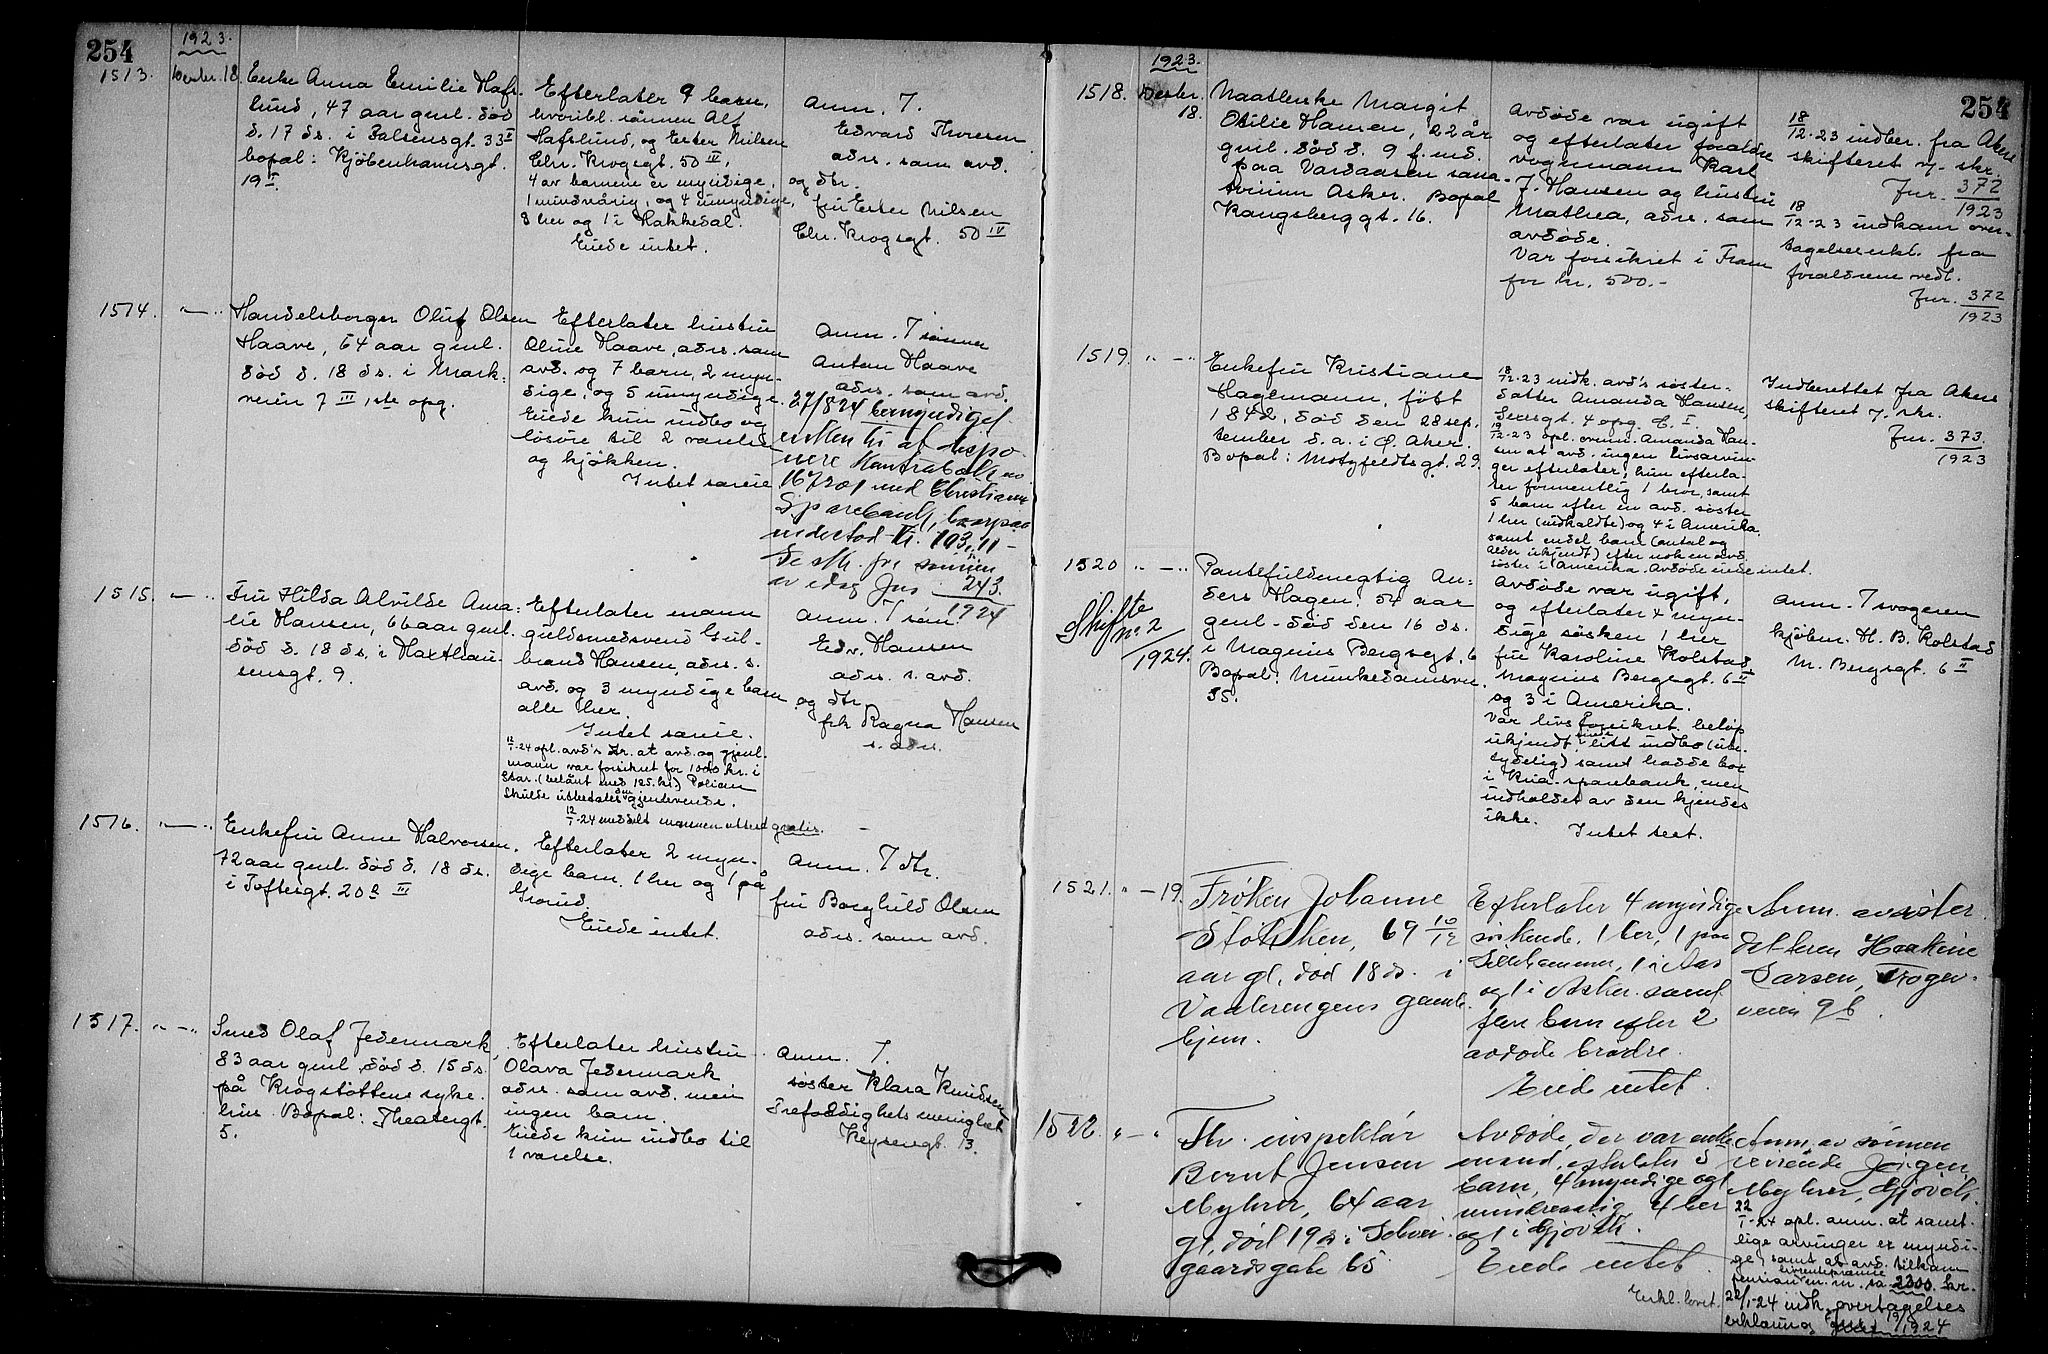 254
1923.
1513.
Desbr. 18.
Enke Anna Emilie Hafs-
lund, 47 aar gml. död
d. 17 ds. i
bopæl: Kjöbenhavnsgt.
19 I.
Efterlater 9 barn,
hvoribl. sönnen Alf
Hafslund, og Ester Nilsen
Chr. Krogsgt. 50 IV,
4 av barnene er myndige,
1 mindreårig, og 4 umyndige,
8 her og 1 i Hakkedal.
Eiede intet.
Anm. T.
Edvard Thoresen
adrs. som avd.
og dtr.
fru Ester Nilsen
Chr. Krogsgt. 50 IV
1514.
Handelsborger Oluf Olsen
Haave, 64 aar gml.
död d. 18 ds. i Mark-
veien 7 III, 1ste opg.
Efterlater hustru
Oline Haave, adrs. som
avd. og 7 barn, 2 myn-
dige, og 5 umyndige.
Eiede kun indbo og
lösöre til 2 værelser
og kjökken.
Intet særeie
Anm. T sönnen
Anton Haave
adrs. som avd.
27/8 24 bemyndiget
enken til at dispo-
nere Kontrabok no
167201 med Christiania
Sparebank, hvorpaa
indestod kr. 193,11 -
av idag Jnr 243
1924
1515.
Fru Hilda Alvilde Ama-
lie Hansen, 66 aar gml.
död d. 18 ds. i Maxthau-
sensgt. 9.
Efterlater mann
guldsmedsvend Gul-
brand Hansen, adrs. s.
avd. og 3 myndige barn
alle her.
Intet særeie.
12/1-24 opl. avd's dtr. at avd. og gjenl.
mann var forsikret for 1000 kr. i
(belånt med 125 kr.) Polisen
skulde utbetales den gjenlevende.
12/1-24 meddelt mannen attest gratis.
Anm. T sön
Edv. Hansen
adrs. s. avd.
og dtr
frk Ragna Hansen
s. adrs.
1516.
Enkefru Anne Halvorsen,
72 aar gml. död d. 18 ds.
i Toftesgt. 20 III
Efterlater 2 myn-
dige barn, 1 her og 1 på
Grorud.
Eiede intet.
Anm. T dtr.
fru Borghild Olsen
adrs. som avd.
1517.
Smed Olaf Jedermark,
83 aar gml. död d. 15 ds.
på Krogstöttens syke-
hus. Bopæl: Theatergt.
5.
Efterlater hustru
Olava Jedermark
adrs. som avd. men
ingen barn.
Eiede kun indbo til
1 værelse.
Anm. T.
söster Klara Knudsen
Trefoldighets menighet
Keysersgt. 13.
1923.
254
1518.
Desbr.
18.
Maatlerske Margit
Otilie Hansen, 22 år
gml. död d. 9 f. md.
paa Vardaasen sana-
torium Asker. Bopæl
Kongsberggt. 16.
Avdöde var ugift
og efterlater forældre
vognmann Karl
J. Hansen og hustru
Mathea, adrs. som
avdöde.
Var forsikret i Fram
for kr. 500.-
18/12-23 indber. fra Aker
skifteret v. skr.
Jnr. 372
1923
18/12-23 indkom over-
tagelseserkl. fra
forældrene vedl.
Jnr. 372
1923
1519.
Enkefru Kristiane
Hagemann, födt
1842, död den 28 sep-
tember d. a. i Ö. Aker.
Bopæl: Motzfeldtsgt. 29.
18/12-23 indk. avd's söster-
datter Amanda Hansen,
4 opg. C. I.
19/12-23 opl. ovenn. Amanda Han-
sen at avd. ingen livsarvin-
ger efterlater; hun efterla-
ter formentlig 1 bror, samt
5 barn efter en avd. söster
1 her (indkaldte) og 4 i Amerika,
samt endel barn (antal og
alder ukjendt) efter nok en avd.
söster i Amerika. Avdöde eiede intet.
Indberettet fra Akers
skifteret v. skr.
Jnr. 373
1923
1520
Skifte
nr. 2
1924.
Pantefuldmegtig An-
ders Hagen, 54 aar
gml. död den 16 ds.
i Magnus Bergsgt. 6
Bopæl: Munkedamsvn.
35.
Avdöde var ugift,
og efterlater 4 myn-
dige sösken 1 her
fru Karoline Kolstad
Magnus Bergsgt. 6 II
og 3 i Amerika.
Var livsforsikret, belöp
ukjendt, litt indbo (ube-
tydelig) samt hadde bok
i Kria. sparebank, men
indholdet av den kjendes
ikke.
Intet test.
Anm. T svogeren
kjöbm. H. B. Kolstad
M. Bergsgt. 6 II
1521.
19.
Frøken Johanne
69 10/12
aar gl, død 18 ds. i
Vaalerengens gamle-
hjem.
Efterlater 4 myndige
søskende, 1 her, 1 paa
Lillehammer, 1 i Aas
og 1 i Asker samt
flere barn efter 2
avdøde brødre.
Eiede intet.
Anm. av søster
datteren Haakine
Larsen, Vogn-
veien 9b.
1522.
Fhv. inspektör
Bernt Jensen
Myhrer, 64 aar
gl, død 19 ds i Schwei-
gaardsgate 65
Avdøde, der var enke
mand, efterlater 5
barn, 4 myndige og 1
mindreaarig, 4 her
og 1 i Gjøvik.
Eiede intet.
Erkl. lovet.
Anm. av sønnen
reisende Jørgen
Myhrer, Gjøvik.
22/1-24 opl. anm. at samt-
lige arvinger er myndi-
ge, samt at avd. tilkom
pension m. m. ca 2300 kr.
22/1-24 indk. overtagelses
erklæring 19/1924